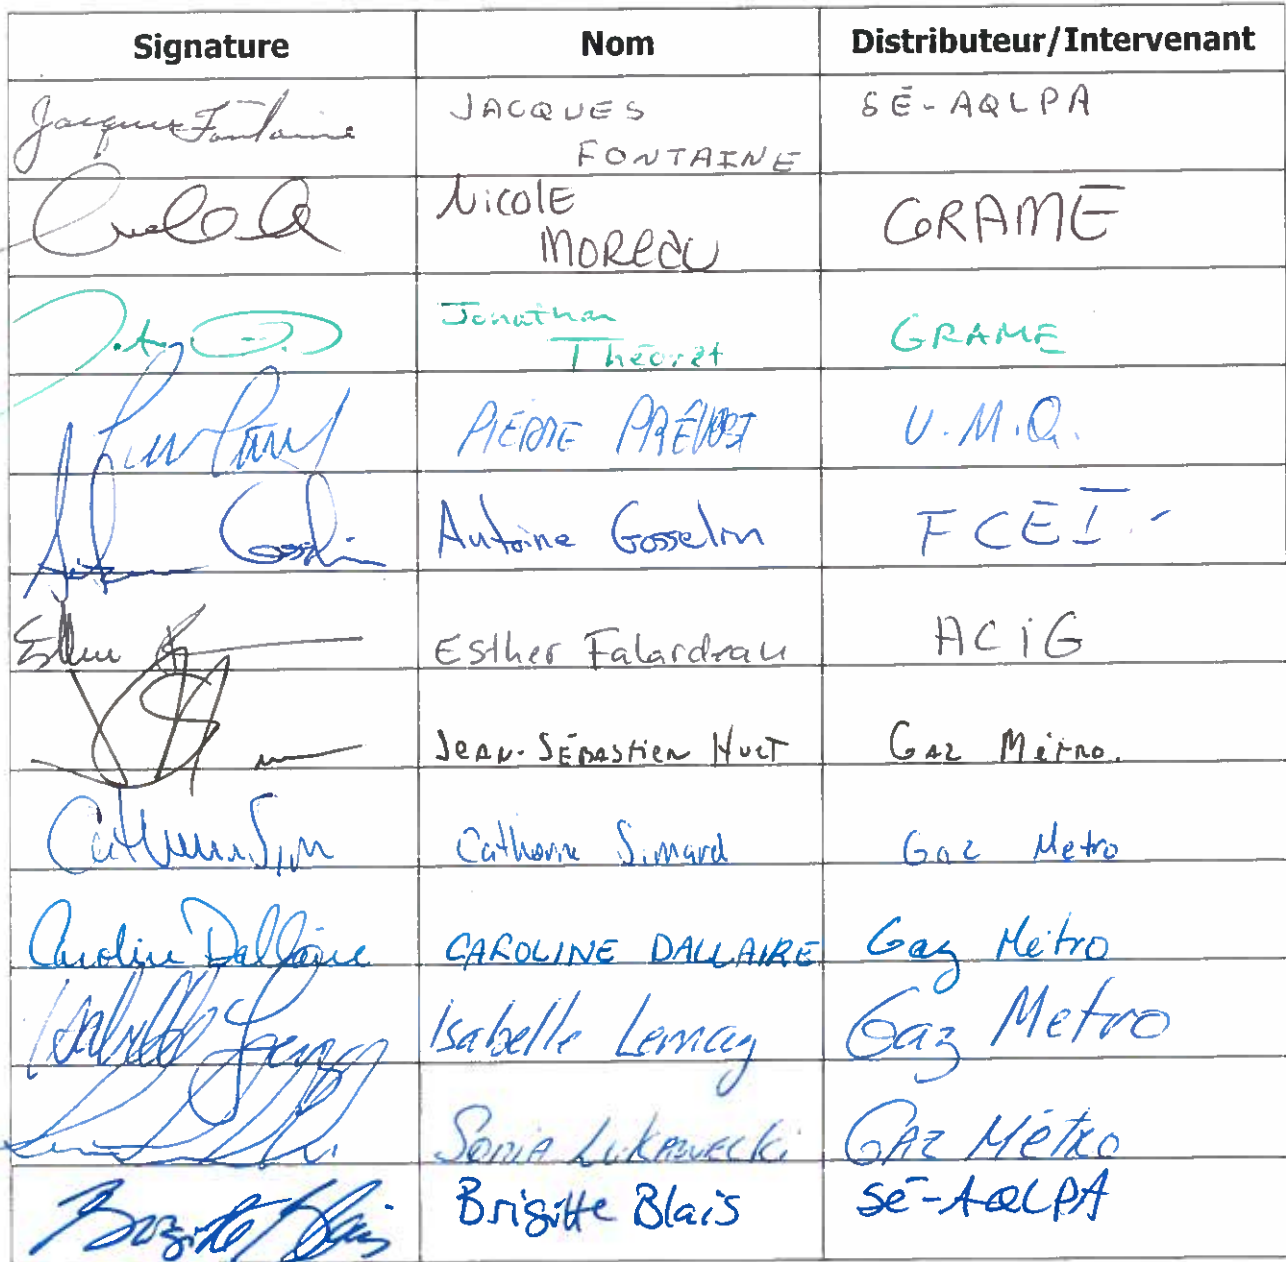 Signature Nom Distributeur/Intervenant
Jacques Fontaine JACQUES SÉ-AQLPA
FONTAINE
Nicole GRAME
MOREAU
Jonathan GRAME
Théorêt
PIERRE PRÉVOST U.M.Q.
Antoine Gosselin FCEI
Esther Falardeau ACIG
JEAN-SÉBASTIEN HUOT GAZ MÉTRO.
Catherine Simard Gaz Metro
Caroline Dallaire CAROLINE DALLAIRE Gaz Métro
Isabelle Lemay Gaz Metro
SONIA GAZ MÉTRO
Brigitte Blais Brigitte Blais SÉ-AQLPA